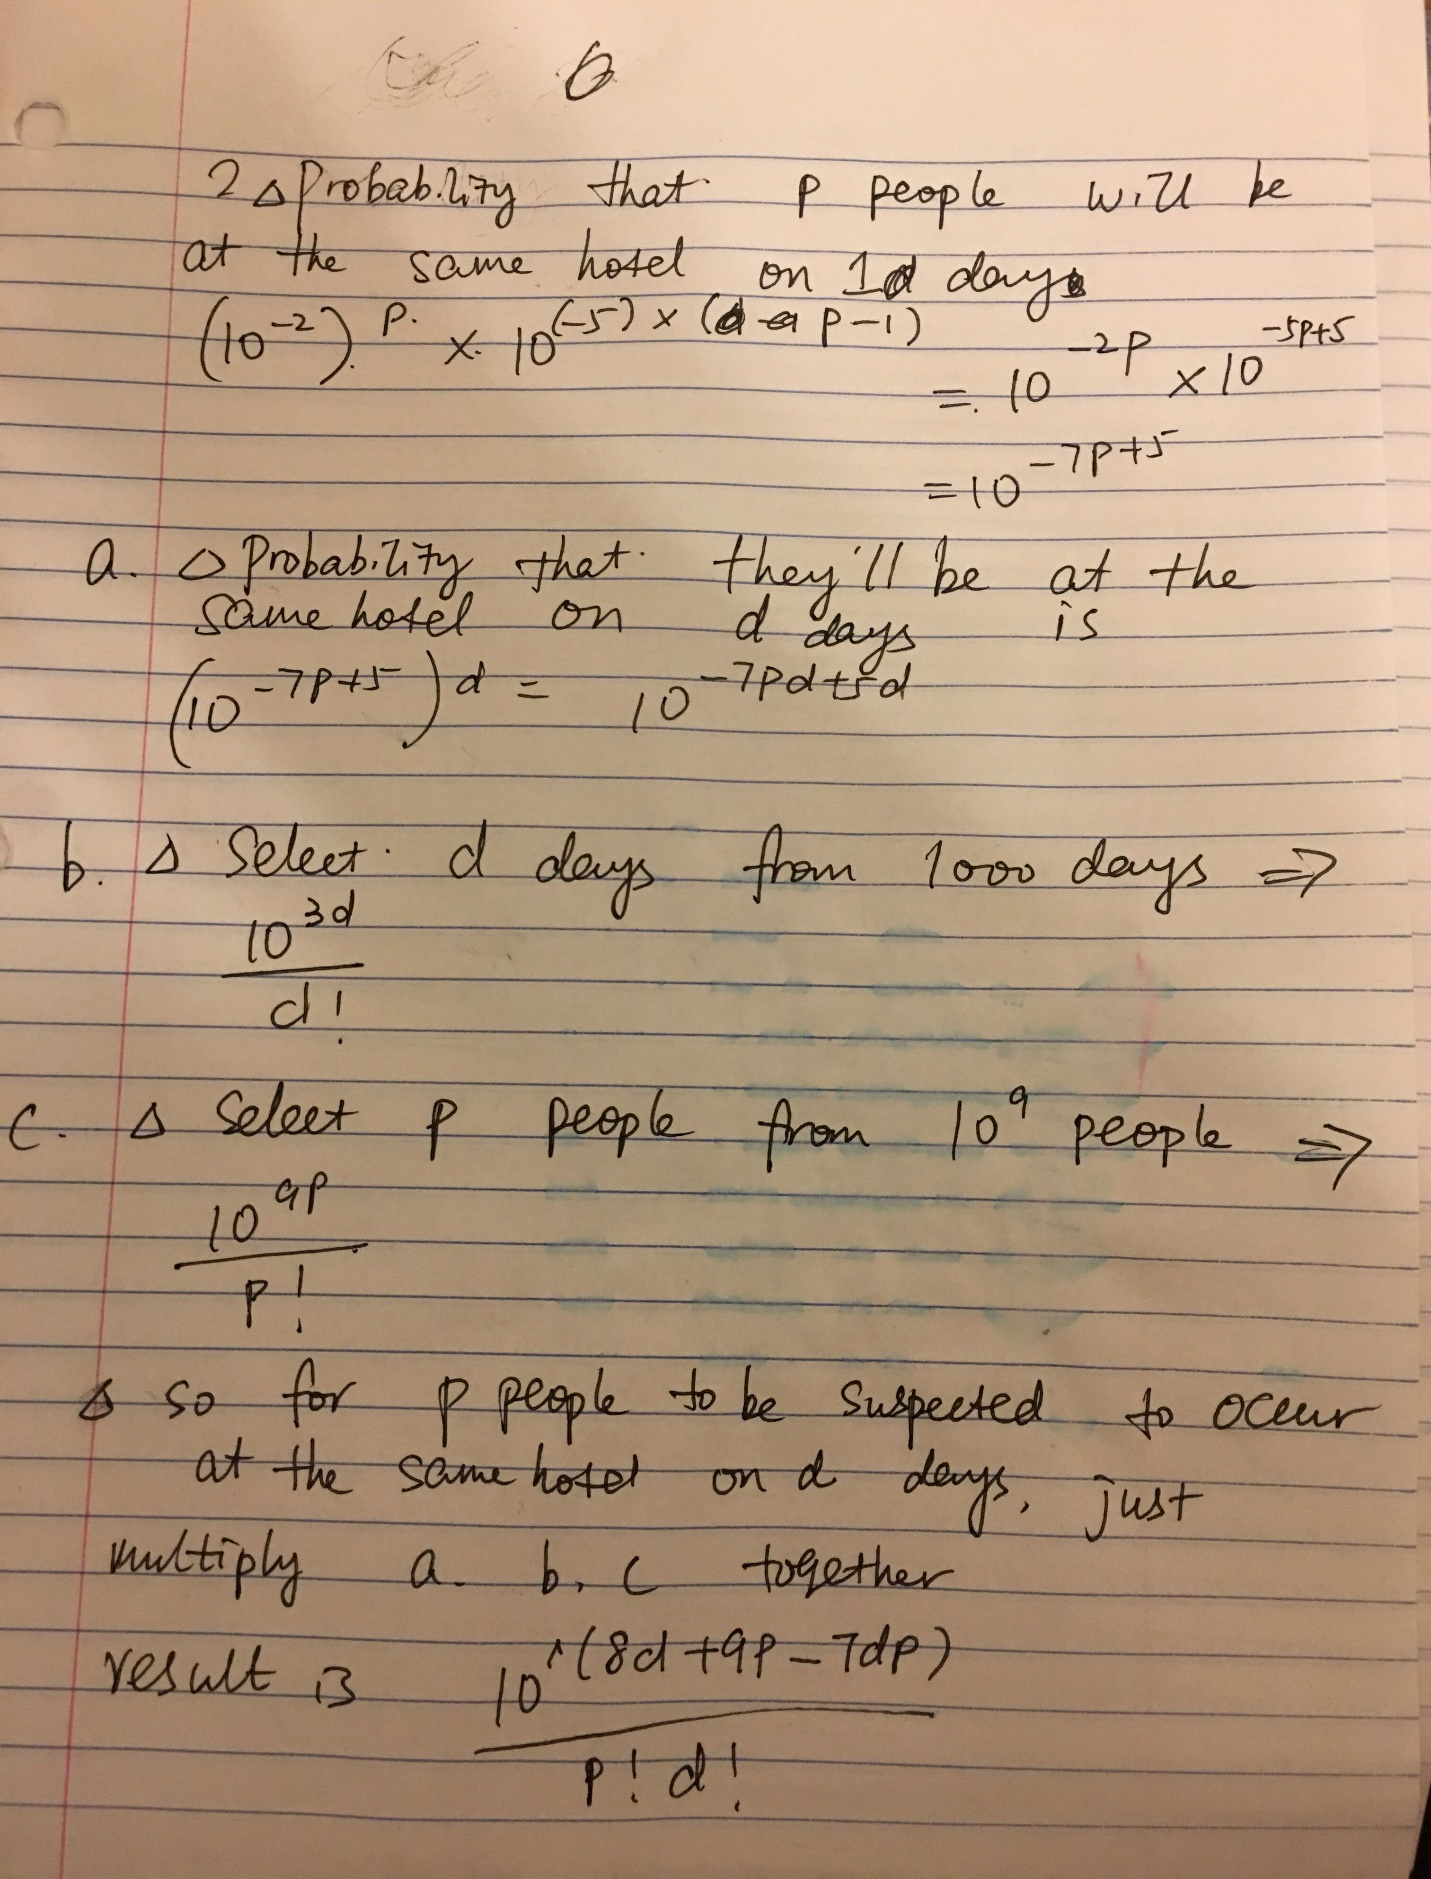 6
2 △ Probability that p people will be
at the same hotel on 1 day
(10^-2)^p × 10^(-5)×(p-1)
= 10^-2p × 10^-5p+5
= 10^-7p+5
a. △ Probability that they'll be at the
same hotel on d days is
(10^-7p+5)^d = 10^-7pd+5d
b. △ Select d days from 1000 days ⇒
10^3d
d!
c. △ Select p people from 10^9 people ⇒
10^9p
p!
△ so for p people to be suspected to occur
at the same hotel on d days, just
multiply a. b. c together
result is 10^(8d+9p-7dp)
p! d!